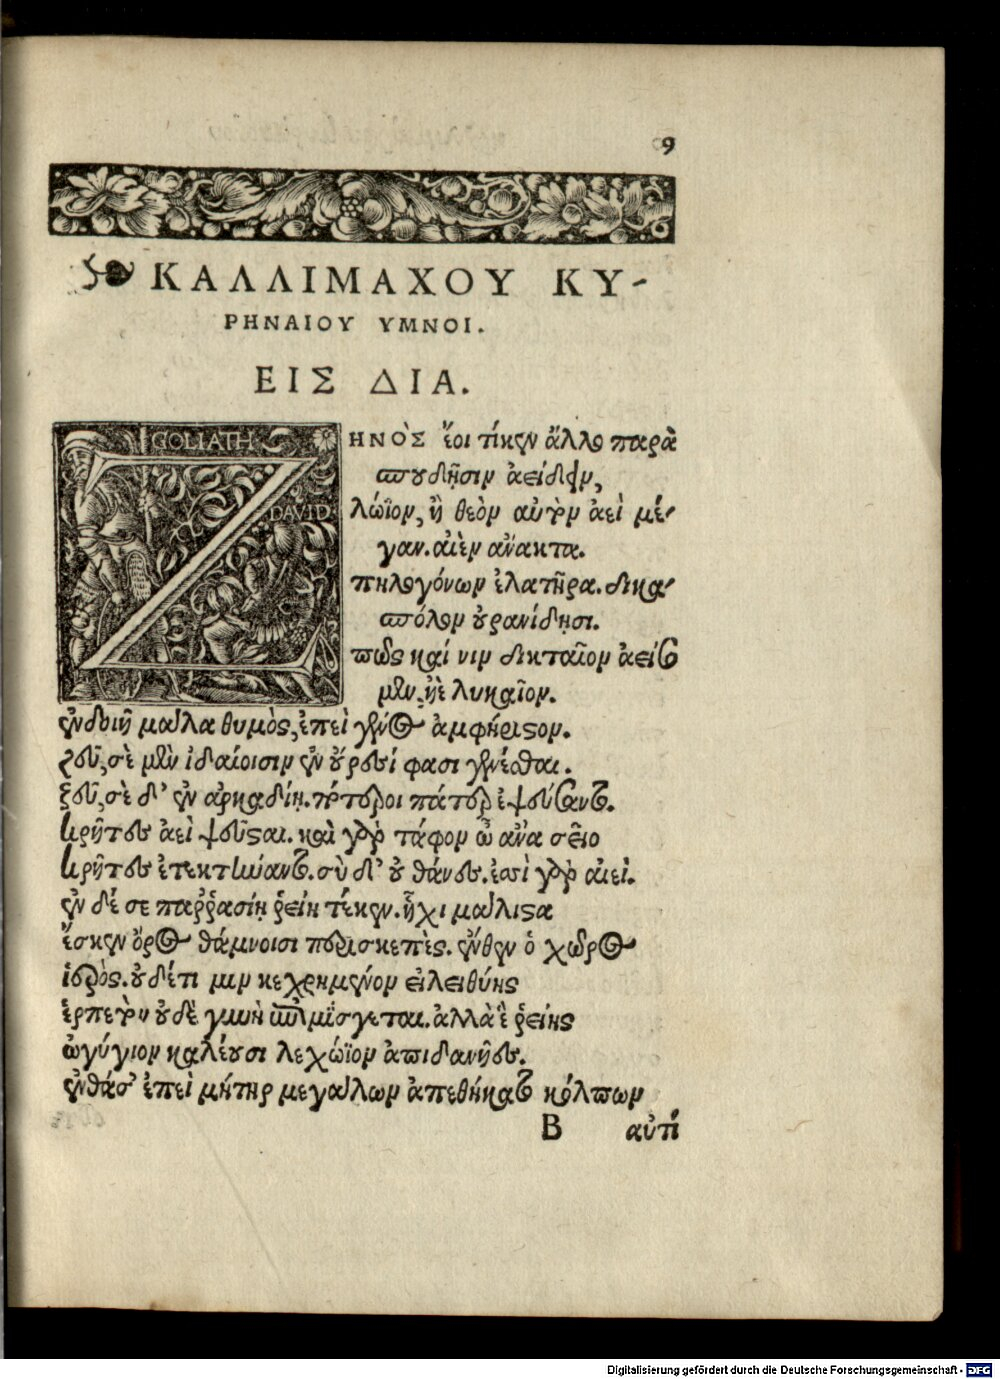 9
ΚΑΛΛΙΜΑΧΟΥ ΚΥ-
ΡΗΝΑΙΟΥ ΥΜΝΟΙ.
ΕΙΣ ΔΙΑ.
GOLIATH
DAVID
ΖΗΝῸΣ ἔοι τί κεν ἄλλο παρὰ
σπουδῇσιν ἀείδειν,
λώϊον, ἢ θεὸν αὐτὸν ἀεὶ μέ-
γαν. αἰὲν ἄνακτα.
πηλογόνων ἐλατῆρα. δικα-
σπόλον οὐρανίδῃσι.
πῶς καί νιν δικταῖον ἀείσο
μεν, ἠὲ λυκαῖον.
ἐν δοιῇ μάλα θυμὸς, ἐπεὶ γένος ἀμφήριστον.
ζεῦ, σὲ μὲν ἰδαίοισιν ἐν οὔρεσί φασι γενέσθαι.
ζεῦ, σὲ δ' ἐν ἀρκαδίῃ. πότεροι πάτερ ἐψεύσαντο.
κρῆτες ἀεὶ ψεῦσται. καὶ γὰρ τάφον ὦ ἄνα σεῖο
κρῆτες ἐτεκτήναντο. σὺ δ' οὐ θάνες. ἐσσὶ γὰρ αἰεί.
ἐν δέ σε παῤῥασίῃ ῥείη τέκεν. ἧχι μάλιστα
ἔσκεν ὄρος θάμνοισι περισκεπὲς. ἔνθεν ὁ χῶρος
ἱερὸς. οὐδέτι μιν κεχρημένον εἰλειθύης
ἑρπετὸν οὐδὲ γυνὴ ἐπιμίσγεται. ἀλλὰ ἓ ῥείης
ὠγύγιον καλέουσι λεχώϊον ἀπιδανῆες.
ἔνθά σ' ἐπεὶ μήτηρ μεγάλων ἀπεθήκατο κόλπων
B αὐτί
Digitalisierung gefördert durch die Deutsche Forschungsgemeinschaft - DFG